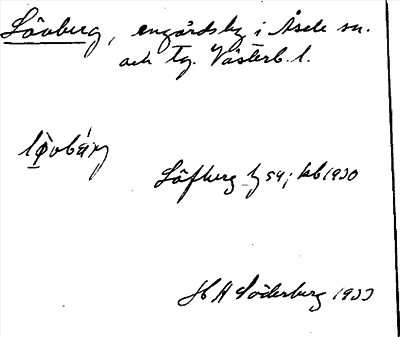 Lövberg, engårdsby i Åsele sn.
och tg. Västerb. l.
Löfberg by 54; kb 1930
H A Söderberg 1933